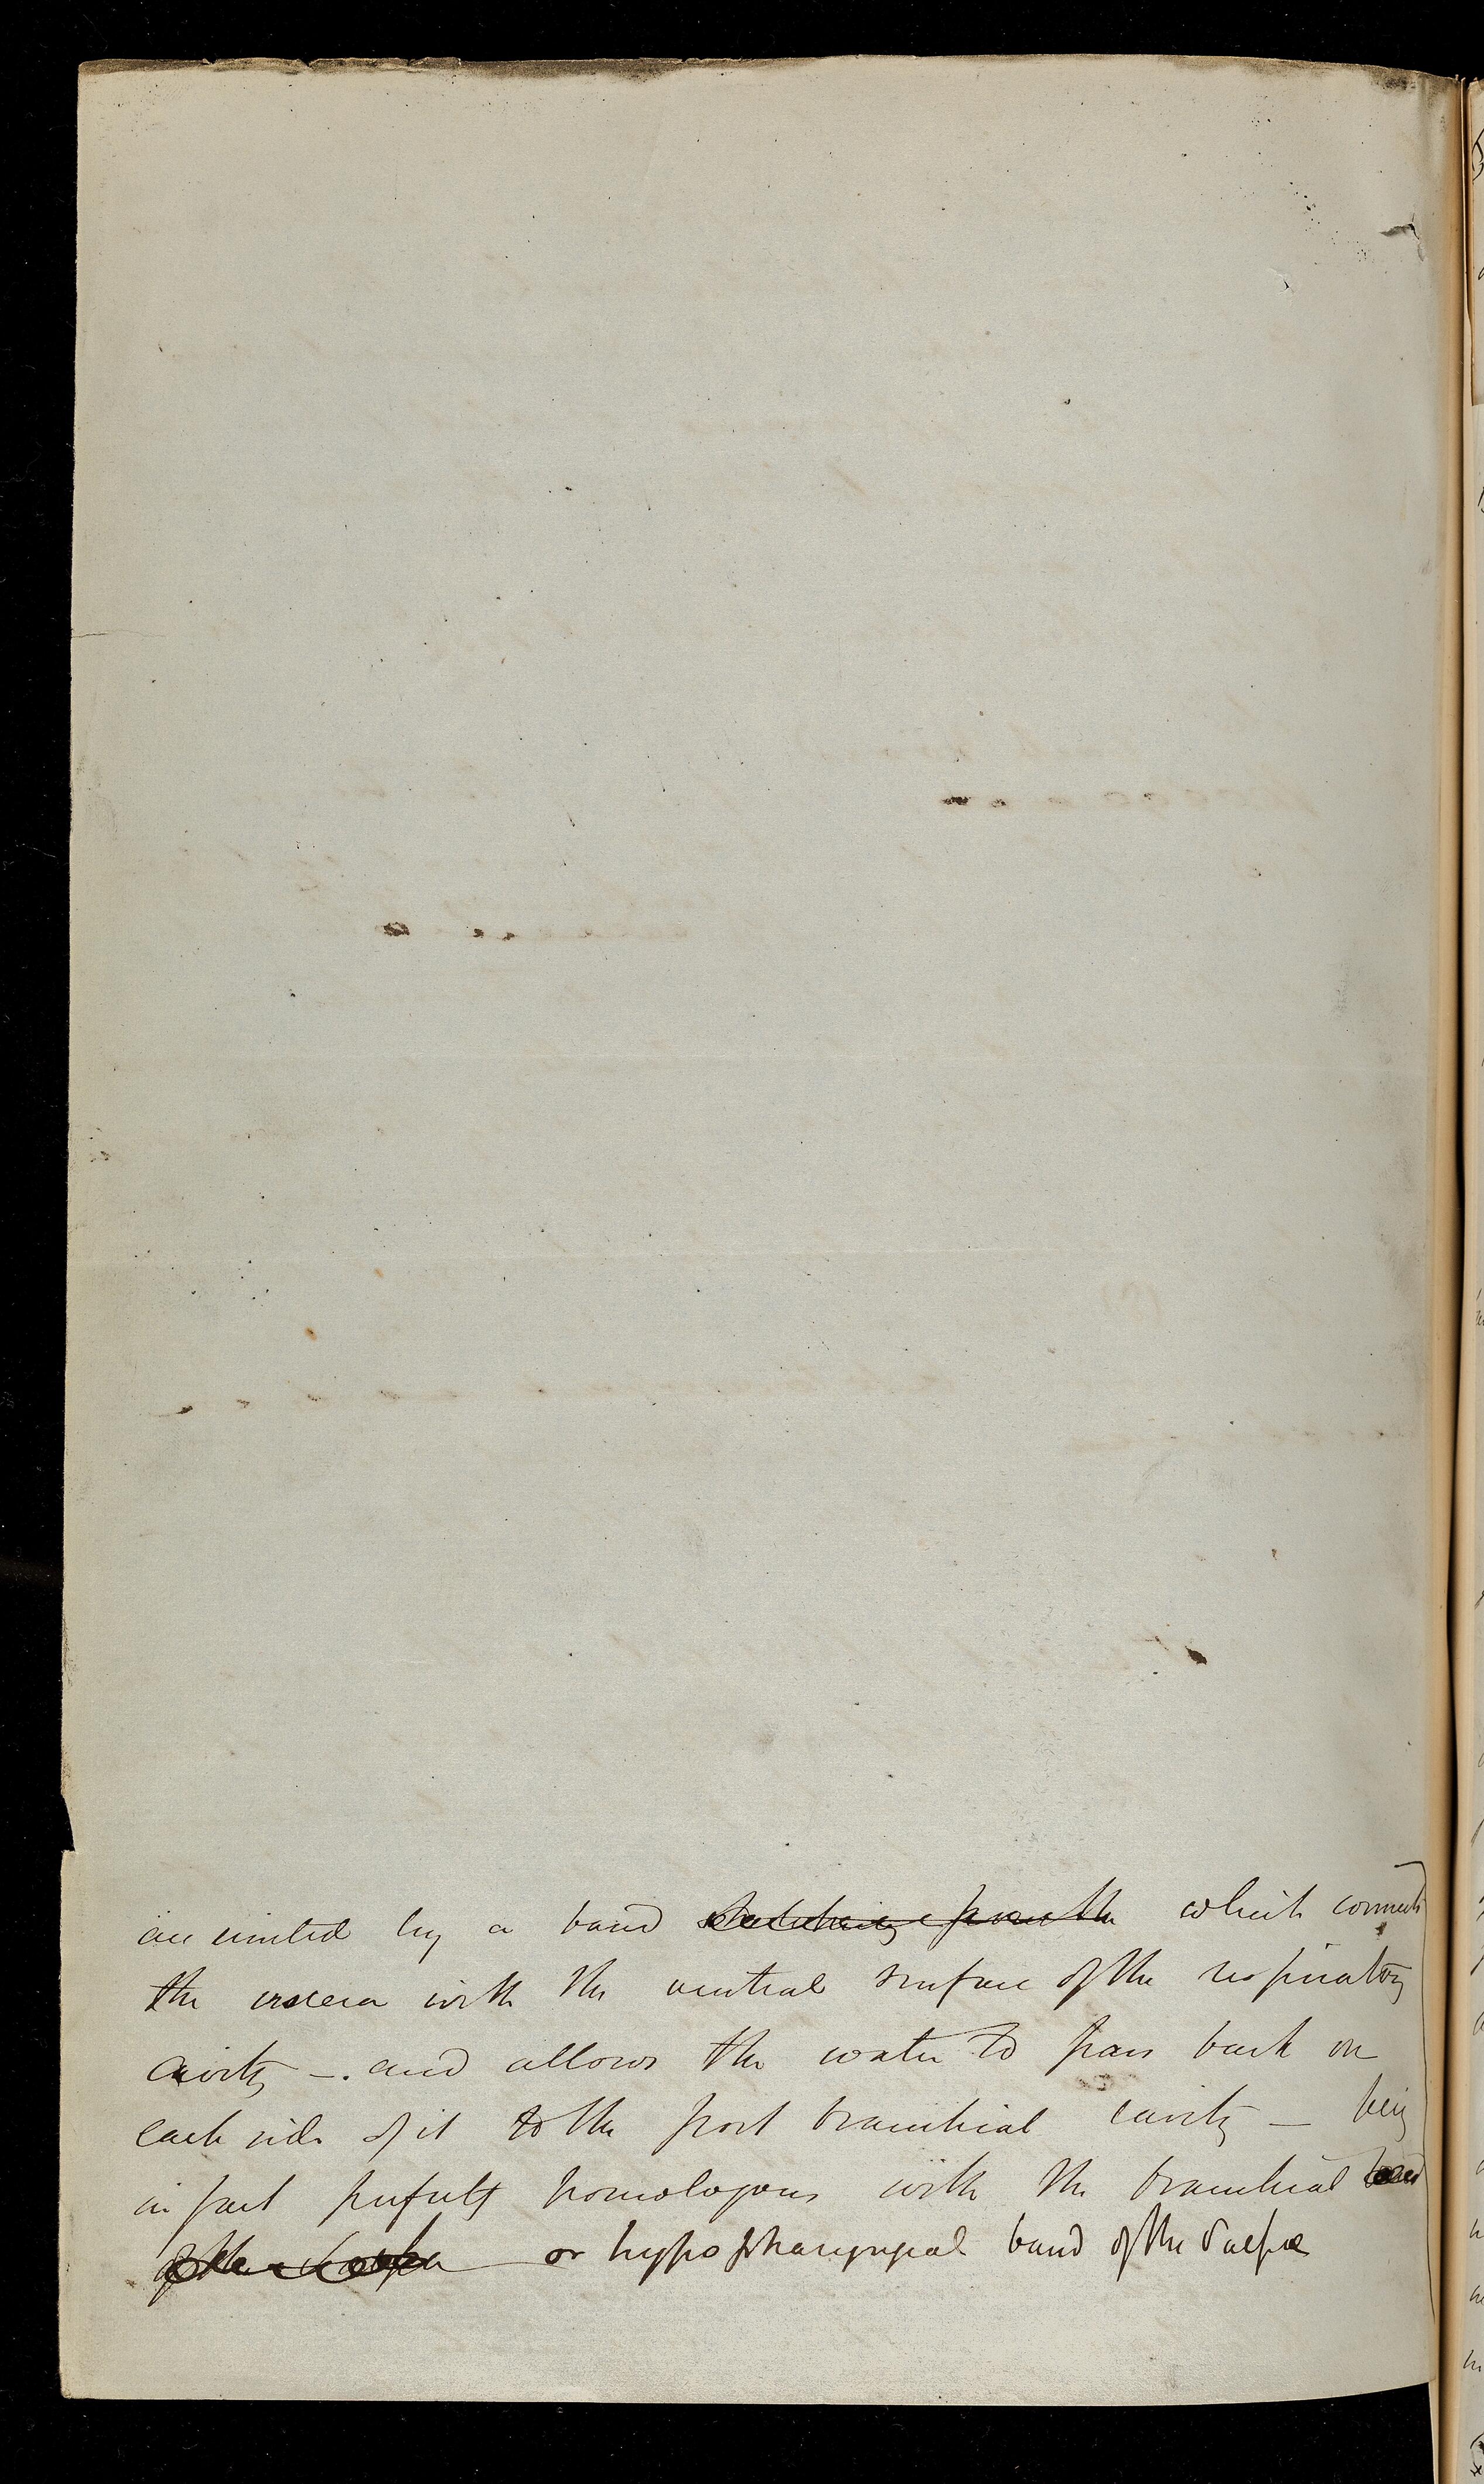 are united by a band stretching from the which connects
the viscera with the ventral surface of the respiratory
cavity —. and allows the water to pass back on
each side of it to the post branchial cavity — being
in fact perfectly homologous with the branchial band
of the Salpa or hypopharyngeal band of the Salpæ